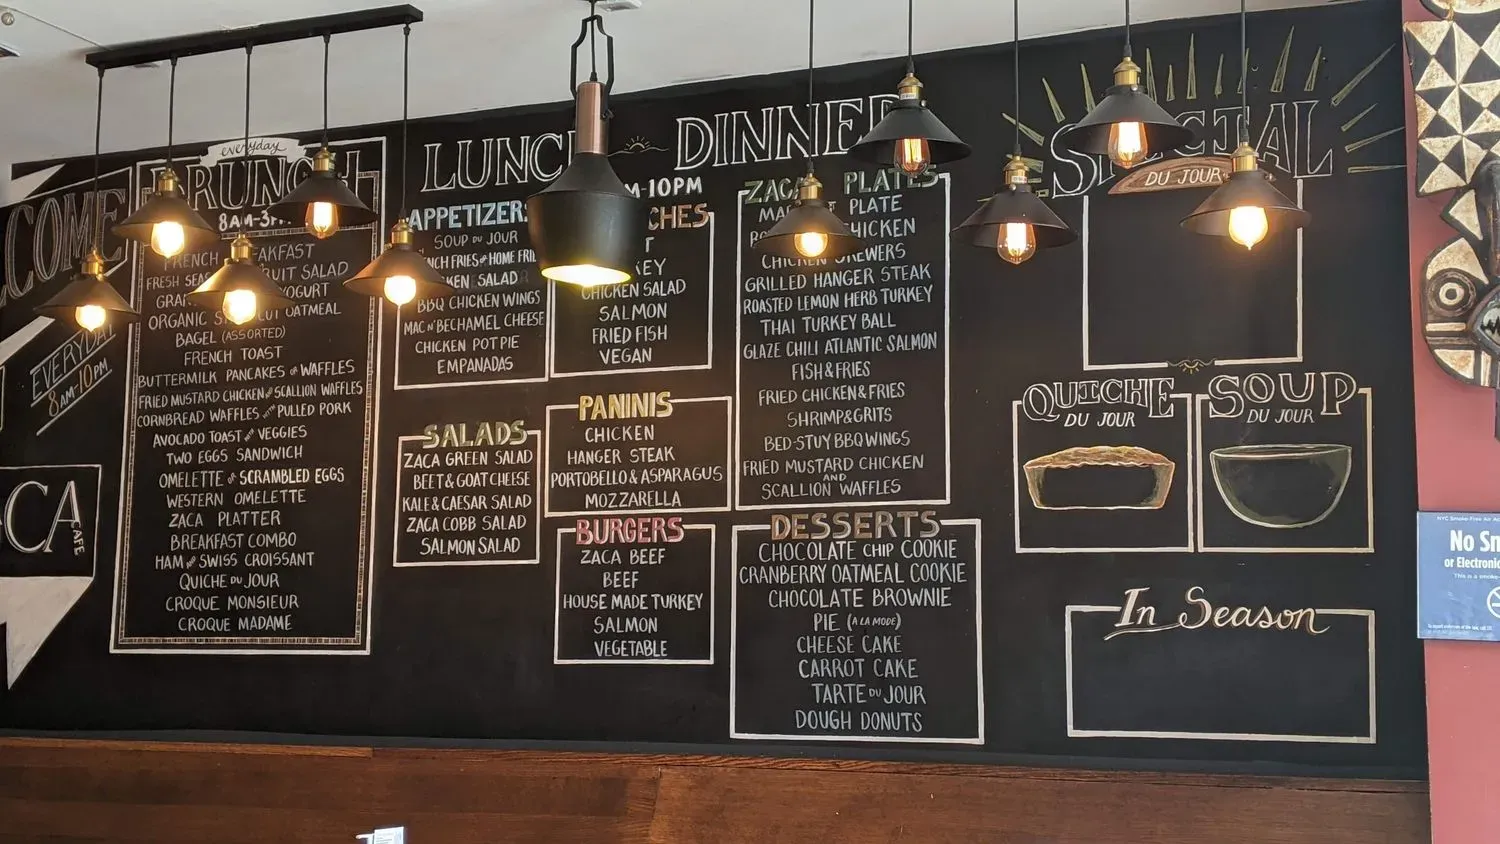 COME
EVERYDAY
8AM-10PM
CA
CAFE
everyday
BRUNCH
8AM-3
FRENCH
FRESH
FRUIT SALAD
YOGURT
ORGANIC
OATMEAL
BAGEL (ASSORTED)
FRENCH TOAST
BUTTERMILK PANCAKES or WAFFLES
FRIED MUSTARD CHICKEN and SCALLION WAFFLES
CORNBREAD WAFFLES with PULLED PORK
AVOCADO TOAST with VEGGIES
TWO EGGS SANDWICH
OMELETTE or SCRAMBLED EGGS
WESTERN OMELETTE
ZACA PLATTER
BREAKFAST COMBO
HAM and SWISS CROISSANT
QUICHE DU JOUR
CROQUE MONSIEUR
CROQUE MADAME
LUNC
DINNER
M-10PM
APPETIZERS
SOUP DU JOUR
NCH FRIES or HOME FRIE
KEN SALAD
BBQ CHICKEN WINGS
MAC N' BECHAMEL CHEESE
CHICKEN POT PIE
EMPANADAS
SALADS
ZACA GREEN SALAD
BEET & GOAT CHEESE
KALE & CAESAR SALAD
ZACA COBB SALAD
SALMON SALAD
CHES
T
KEY
CHICKEN SALAD
SALMON
FRIED FISH
VEGAN
PANINIS
CHICKEN
HANGER STEAK
PORTOBELLO & ASPARAGUS
MOZZARELLA
BURGERS
ZACA BEEF
BEEF
HOUSE MADE TURKEY
SALMON
VEGETABLE
ZACA PLATES
PLATE
CHICKEN
CHICKEN SKEWERS
GRILLED HANGER STEAK
ROASTED LEMON HERB TURKEY
THAI TURKEY BALL
GLAZE CHILI ATLANTIC SALMON
FISH & FRIES
FRIED CHICKEN & FRIES
SHRIMP & GRITS
BED-STUY BBQ WINGS
FRIED MUSTARD CHICKEN
AND
SCALLION WAFFLES
DESSERTS
CHOCOLATE CHIP COOKIE
CRANBERRY OATMEAL COOKIE
CHOCOLATE BROWNIE
PIE (A LA MODE)
CHEESE CAKE
CARROT CAKE
TARTE DU JOUR
DOUGH DONUTS
SPECIAL
DU JOUR
QUICHE
DU JOUR
SOUP
DU JOUR
In Season
NYC Smoke-Free Air A
No Sm
or Electronic
This is a smoke